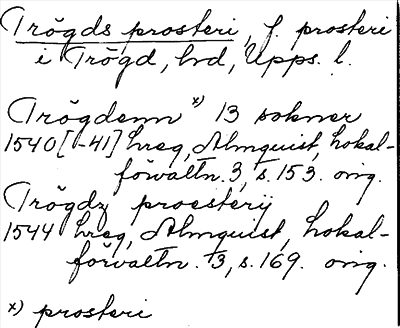 Trögds prosteri, f. prosteri
i Trögd, hd, Upps. l.
Trögdenn x) 13 sokner
1540[-41] hreg, Almquist, Lokal-
förvaltn. 3, s. 153. orig.
Trögdz proesterij
1544 hreg, Almquist, Lokal-
förvaltn. 3, s. 169. orig.
x) prosteri